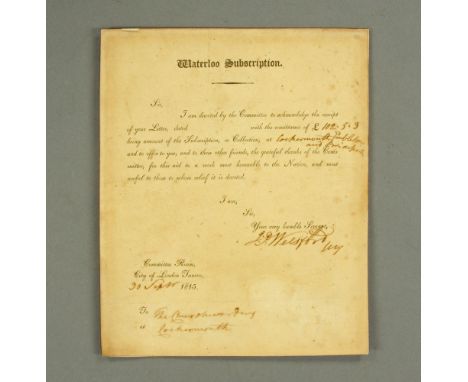 Waterloo Subscription.
Sir,
I am directed by the Committee to acknowledge the receipt
of your Letter, dated with the remittance of £ 112-5-3
being amount of the Subscription, or Collection, at Cockermouth
and to offer to you, and to those other friends, the grateful thanks of the Com-
mittee, for this aid to a work most honorable to the Nation, and most
useful to those to whose relief it is devoted.
I am,
Sir,
Your very humble Servant,
Committee Room,
City of London Tavern,
30 Septr 1815.
To The
" Cockermouth